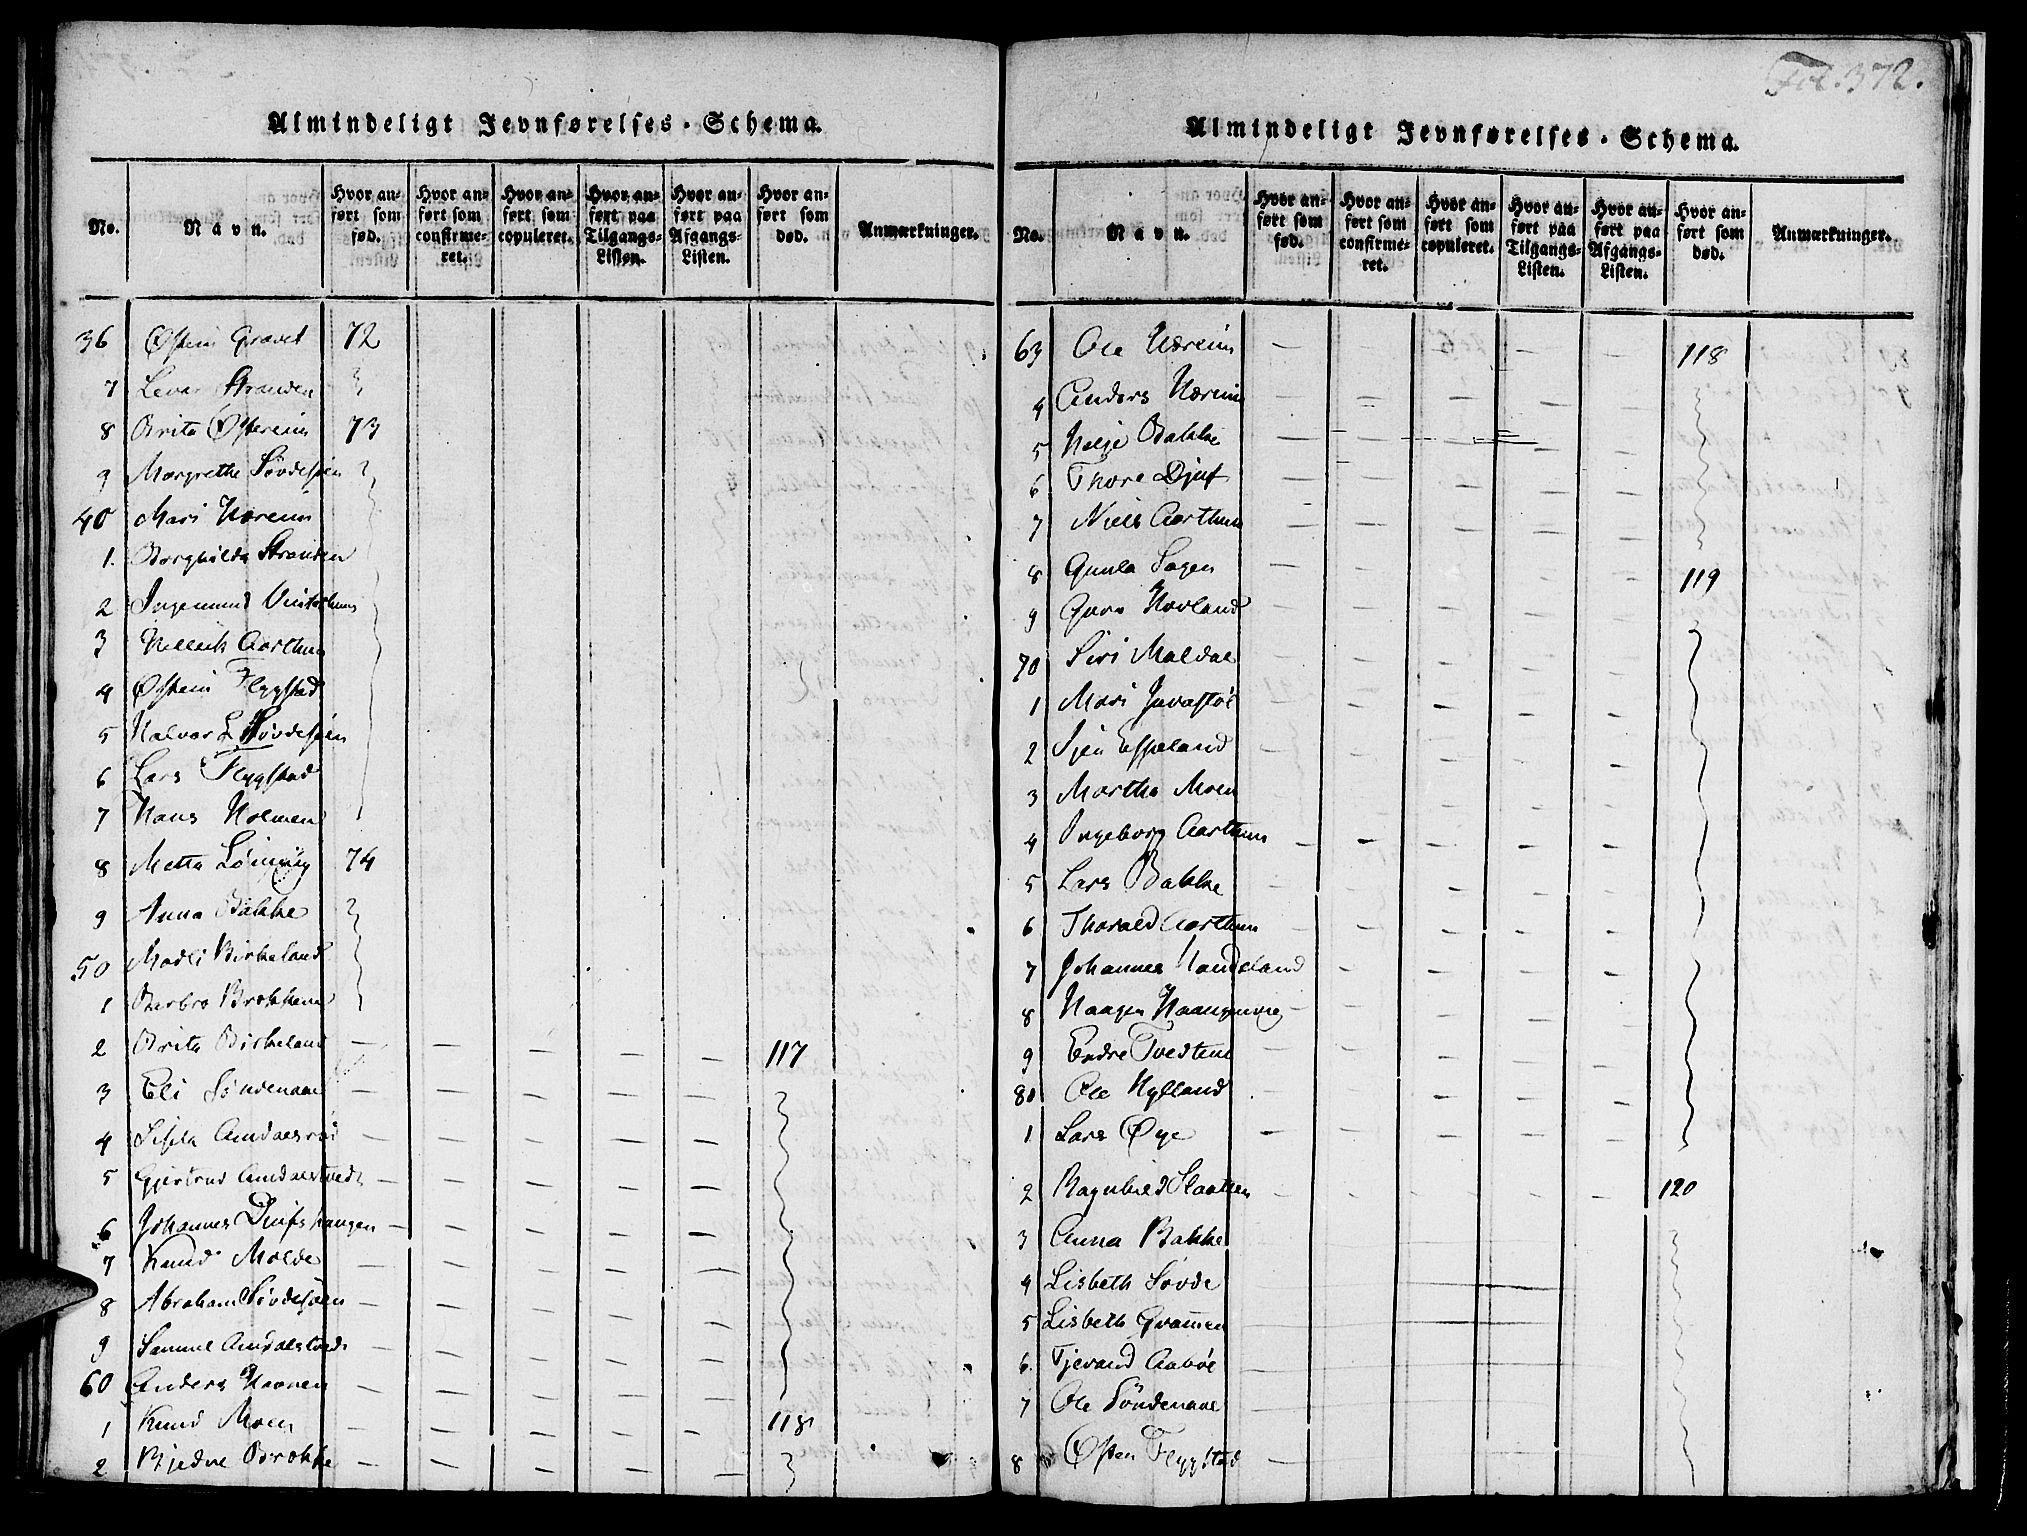 Fol. 372.
Almindeligt Jevnførelses-Schema.
No. Navn. Hvor anført som fød. Hvor anført som confirmeret. Hvor anført som copuleret. Hvor anført paa Tilgangs-Listen. Hvor anført paa Afgangs-Listen. Hvor anført som død. Anmærkninger.
36 Østein Gravet 72
7 Levar Stranden
8 Brita Østereim 73
9 Margrethe Søvdesøen
40 Mari Hæreim
1. Borghilda Stranden
2 Ingemund Vintethun
3 Hellerik Aarthun
4 Østein Flygstad
5 Halvor L. Søvdesøen
6 Lars Flygstad
7 Hans Holmen
8 Metta Løining 74
9 Anna Bakke
50 Madli Birkeland
1 Barbro Brokkene
2 Brita Birkeland — — — — — 117
3 Eli Søndenaae — — — — —
4 Sisila Amdaesrød — — — — —
5 Gjertrud Amdaestvedt — — — — —
6 Johannes Diufshaugen — — — — —
7 Knud Molde — — — — —
8 Abraham Søvdesøen — — — — —
9 Samuel Amdaestvedt — — — — —
60 Anders Havnen — — — — —
1 Knud Moen — — — — — 118
2 Bjedne Brokke — — — — —
Almindeligt Jevnførelses-Schema.
No. Navn. Hvor anført som fød. Hvor anført som confirmeret. Hvor anført som copuleret. Hvor anført paa Tilgangs-Listen. Hvor anført paa Afgangs-Listen. Hvor anført som død. Anmærkninger.
63 Ole Hæreim — — — — — 118
4 Anders Hæreim — — — — —
5 Helje Bakke — — — — —
6 Thore Djuf — — — — —
7 Niels Aarthun — — — — —
8 Gunla Sagen — — — — — 119
9 Guro Hovland — — — — —
70 Siri Maldal — — — — —
1 Mari Juvastøl — — — — —
2 Sjen Espeland — — — — —
3 Martha Moen — — — — —
4 Ingeborg Aarthun — — — — —
5 Lars Bakke — — — — —
6 Thorald Aarthun — — — — —
7 Johannes Handeland — — — — —
8 Haagen Haangenvig — — — — —
9 Endre Tvedtene — — — — —
80 Ole Hylland — — — — —
1 Lars Øye — — — — —
2 Ragnhild Slaatten — — — — — 120
3 Anna Bakke
4 Lisbeth Søvde
5 Lisbeth Gramen
6. Tjerand Aabøe
7 Ole Söndenaae
8 Østen Flygstad —